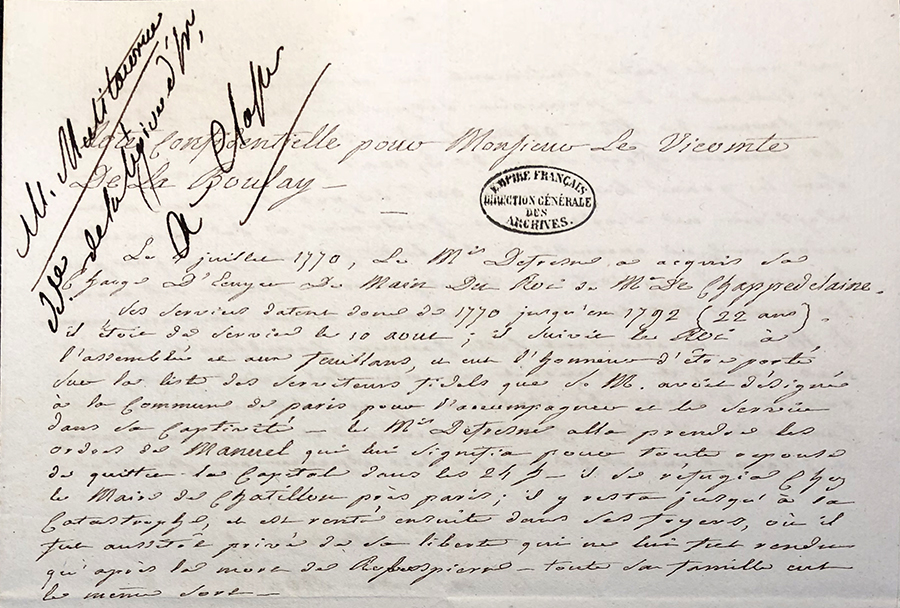 Note Confidentielle pour Monsieur Le Vicomte
De La Boulay –
EMPIRE FRANÇAIS
DIRECTION GÉNÉRALE
DES
ARCHIVES.
Le juillet 1770, Le Mis Defresne a acquis sa
Charge D'Ecuyer De Main Du Roi de Mr De Chappredelaine.
ses services datent donc de 1770 jusqu'en 1792 (22 ans).
il étoit de service le 10 aout; il suivit le Roi à
l'assemblée et aux feuillans, et eut l'honneur d'être porté
sur la liste des serviteurs fidels que S. M. avoit désigné
à la Commune de paris pour l'accompagner et le servir
dans sa Captivité – le Mis Defresne alla prendre les
ordres de Manuel qui lui signifia pour toute reponse
de quitter la Capital dans les 24 h – il se réfugia Chez
le Maire de Chatillon près paris; il y resta jusqu'à la
Catastrophe, et est rentré ensuite dans ses foyers, où il
fut aussitôt privé de sa liberté qui ne lui fut rendu
qu'après la mort de Robespierre – toute sa famille eut
le même sort –